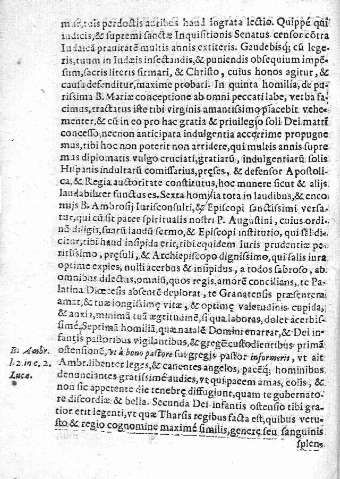 mur, tuis perdoctis auribus haud ingrata lectio. Quippe qui
iudicis, & supremi sanctæ Inquisitionis Senatus censor cõtra
Iudaicã prauitatẽ multis annis extiteris. Gaudebisq; cũ lege-
ris, tuum in Iudæis insectandis, & puniendis obsequium impẽ-
sum, sacris literis firmari, & Christo, cuius honos agitur, &
causa defenditur, maxime probari. In quinta homilia, de pu-
rissima B. Mariæ conceptione ab omni peccati labe, verba fa-
cimus, tractatus iste tibi virginis amantissimo placebit vehe-
menter, & cũ in eo pro hac gratia & priuilegio soli Dei matri
concesso, necnon anticipata indulgentia acerrime propugne
mus, tibi hoc non poterit non arridere, qui muleis annis supre
mus diplomatis vulgo cruciati, gratiarũ, indulgentiarũ solis
Hispanis indultarũ comissarius, præses, & defensor Apostoli-
ca, & Regia auctoritate constitutus, hoc munere sicut & alijs
laudabiliter functus es. Sexta homilia tota in laudibus, & enco
mijs B. Ambrosij Iurisconsulti, & Episcopi sanctissimi versa-
tur, qui cũ sit pater spiritualis nostri P. Augustini, cuius ordi-
nẽ diligis, suarũ laudũ sermo, & Episcopi institutio, qui ibi di-
citur, tibi haud insipida erit, tibi equidem Iuris prudentiæ pe
ritissimo, præsuli, & Archiepiscopo dignissimo, qui salis iura
optime expies, nulli acerbus & insipidus, a todos sabroso, ab
omnibus dilectus, omniũ, quos regis, amorẽ concilians, te Pa-
latina Diœcesis absentẽ deplorat, te Granatensis præsentem
amat, & tuæ longissimę vitæ, & optimę valetudinis cupida,
& anxia, minimã tuã ægritudinẽ, si qua laboras, dolet acerbis-
simè. Septima homilia, quæ natalẽ Domini enarrat, & Dei in-
fantis pastoribus vigilantibus, & gregẽ custodientibus primã
ostensionẽ, vt à bono pastore sui gregis pastor informeris, vt ait
B. Ambr.
l. 2. in c. 2.
Lucæ.
Ambr. libenter leges, & canentes angelos, pacẽq; hominibus
denunciantes gratissimè audies, vt qui pacem amas, colis, &
non sic appetente die tenebrę diffugiunt, quam te gubernato-
re discordiæ & bella. Secunda Dei infantis ostensio tibi gra-
tior erit legenti, vt quæ Tharsis regibus facta est, quibus vetu-
sto & regio cognomine maximè similis, genere seu sanguinis
splen-